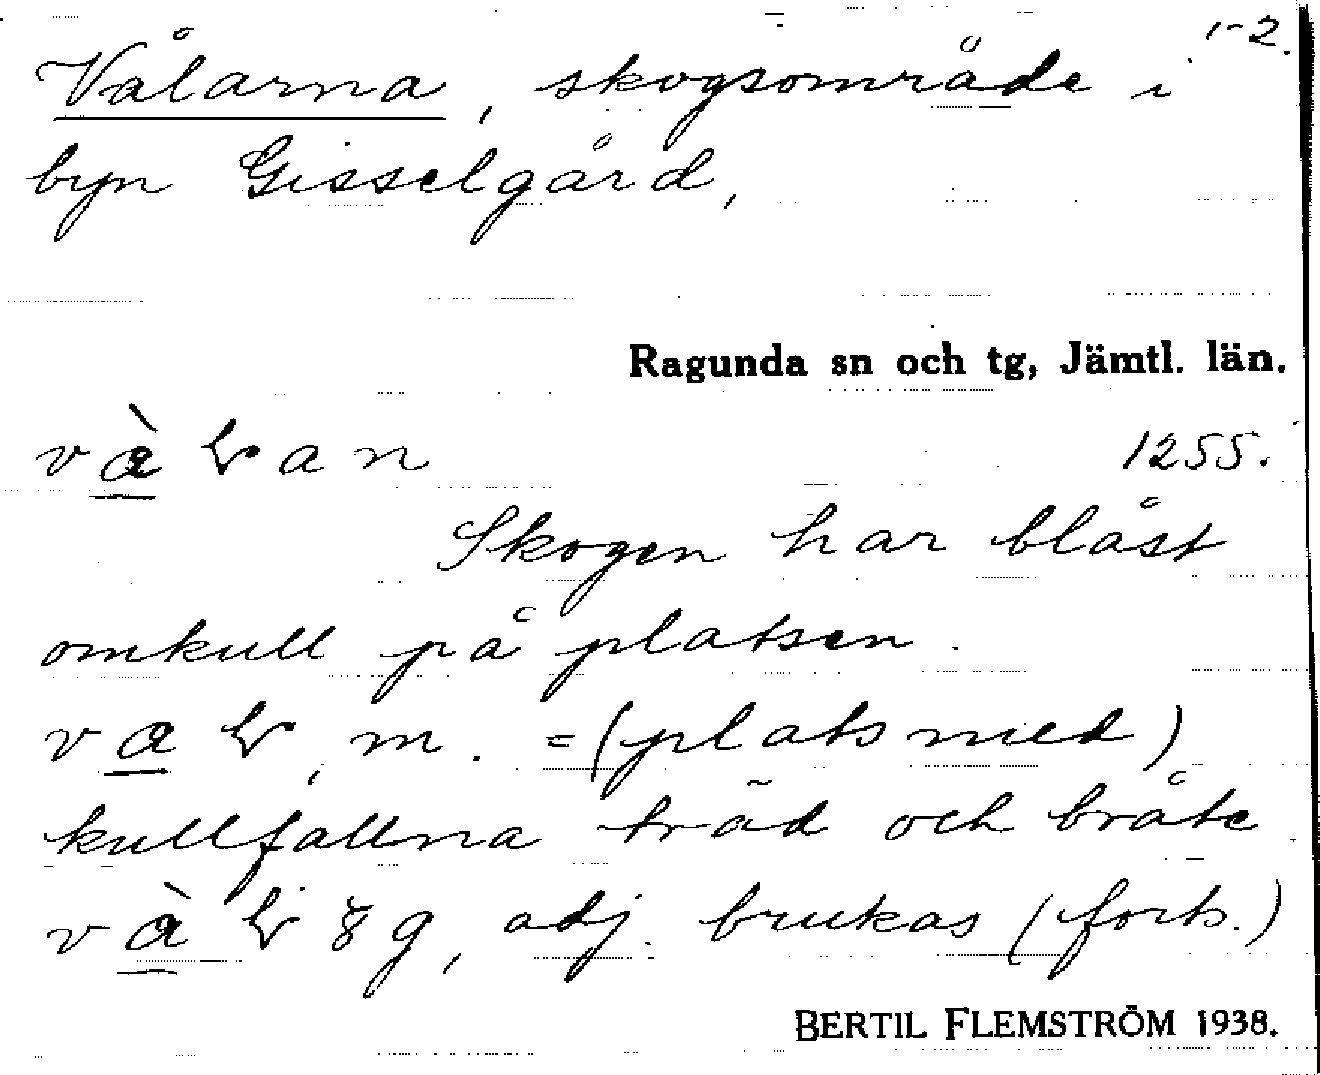 1-2.
Vålarna, skogsområde i
byn Gisselgård,
Ragunda sn och tg, Jämtl. län.
1255.
Skogen har blåst
omkull på platsen.
m. = (plats med)
kullfallna träd och bråte
adj. brukas (forts.)
BERTIL FLEMSTRÖM 1938.